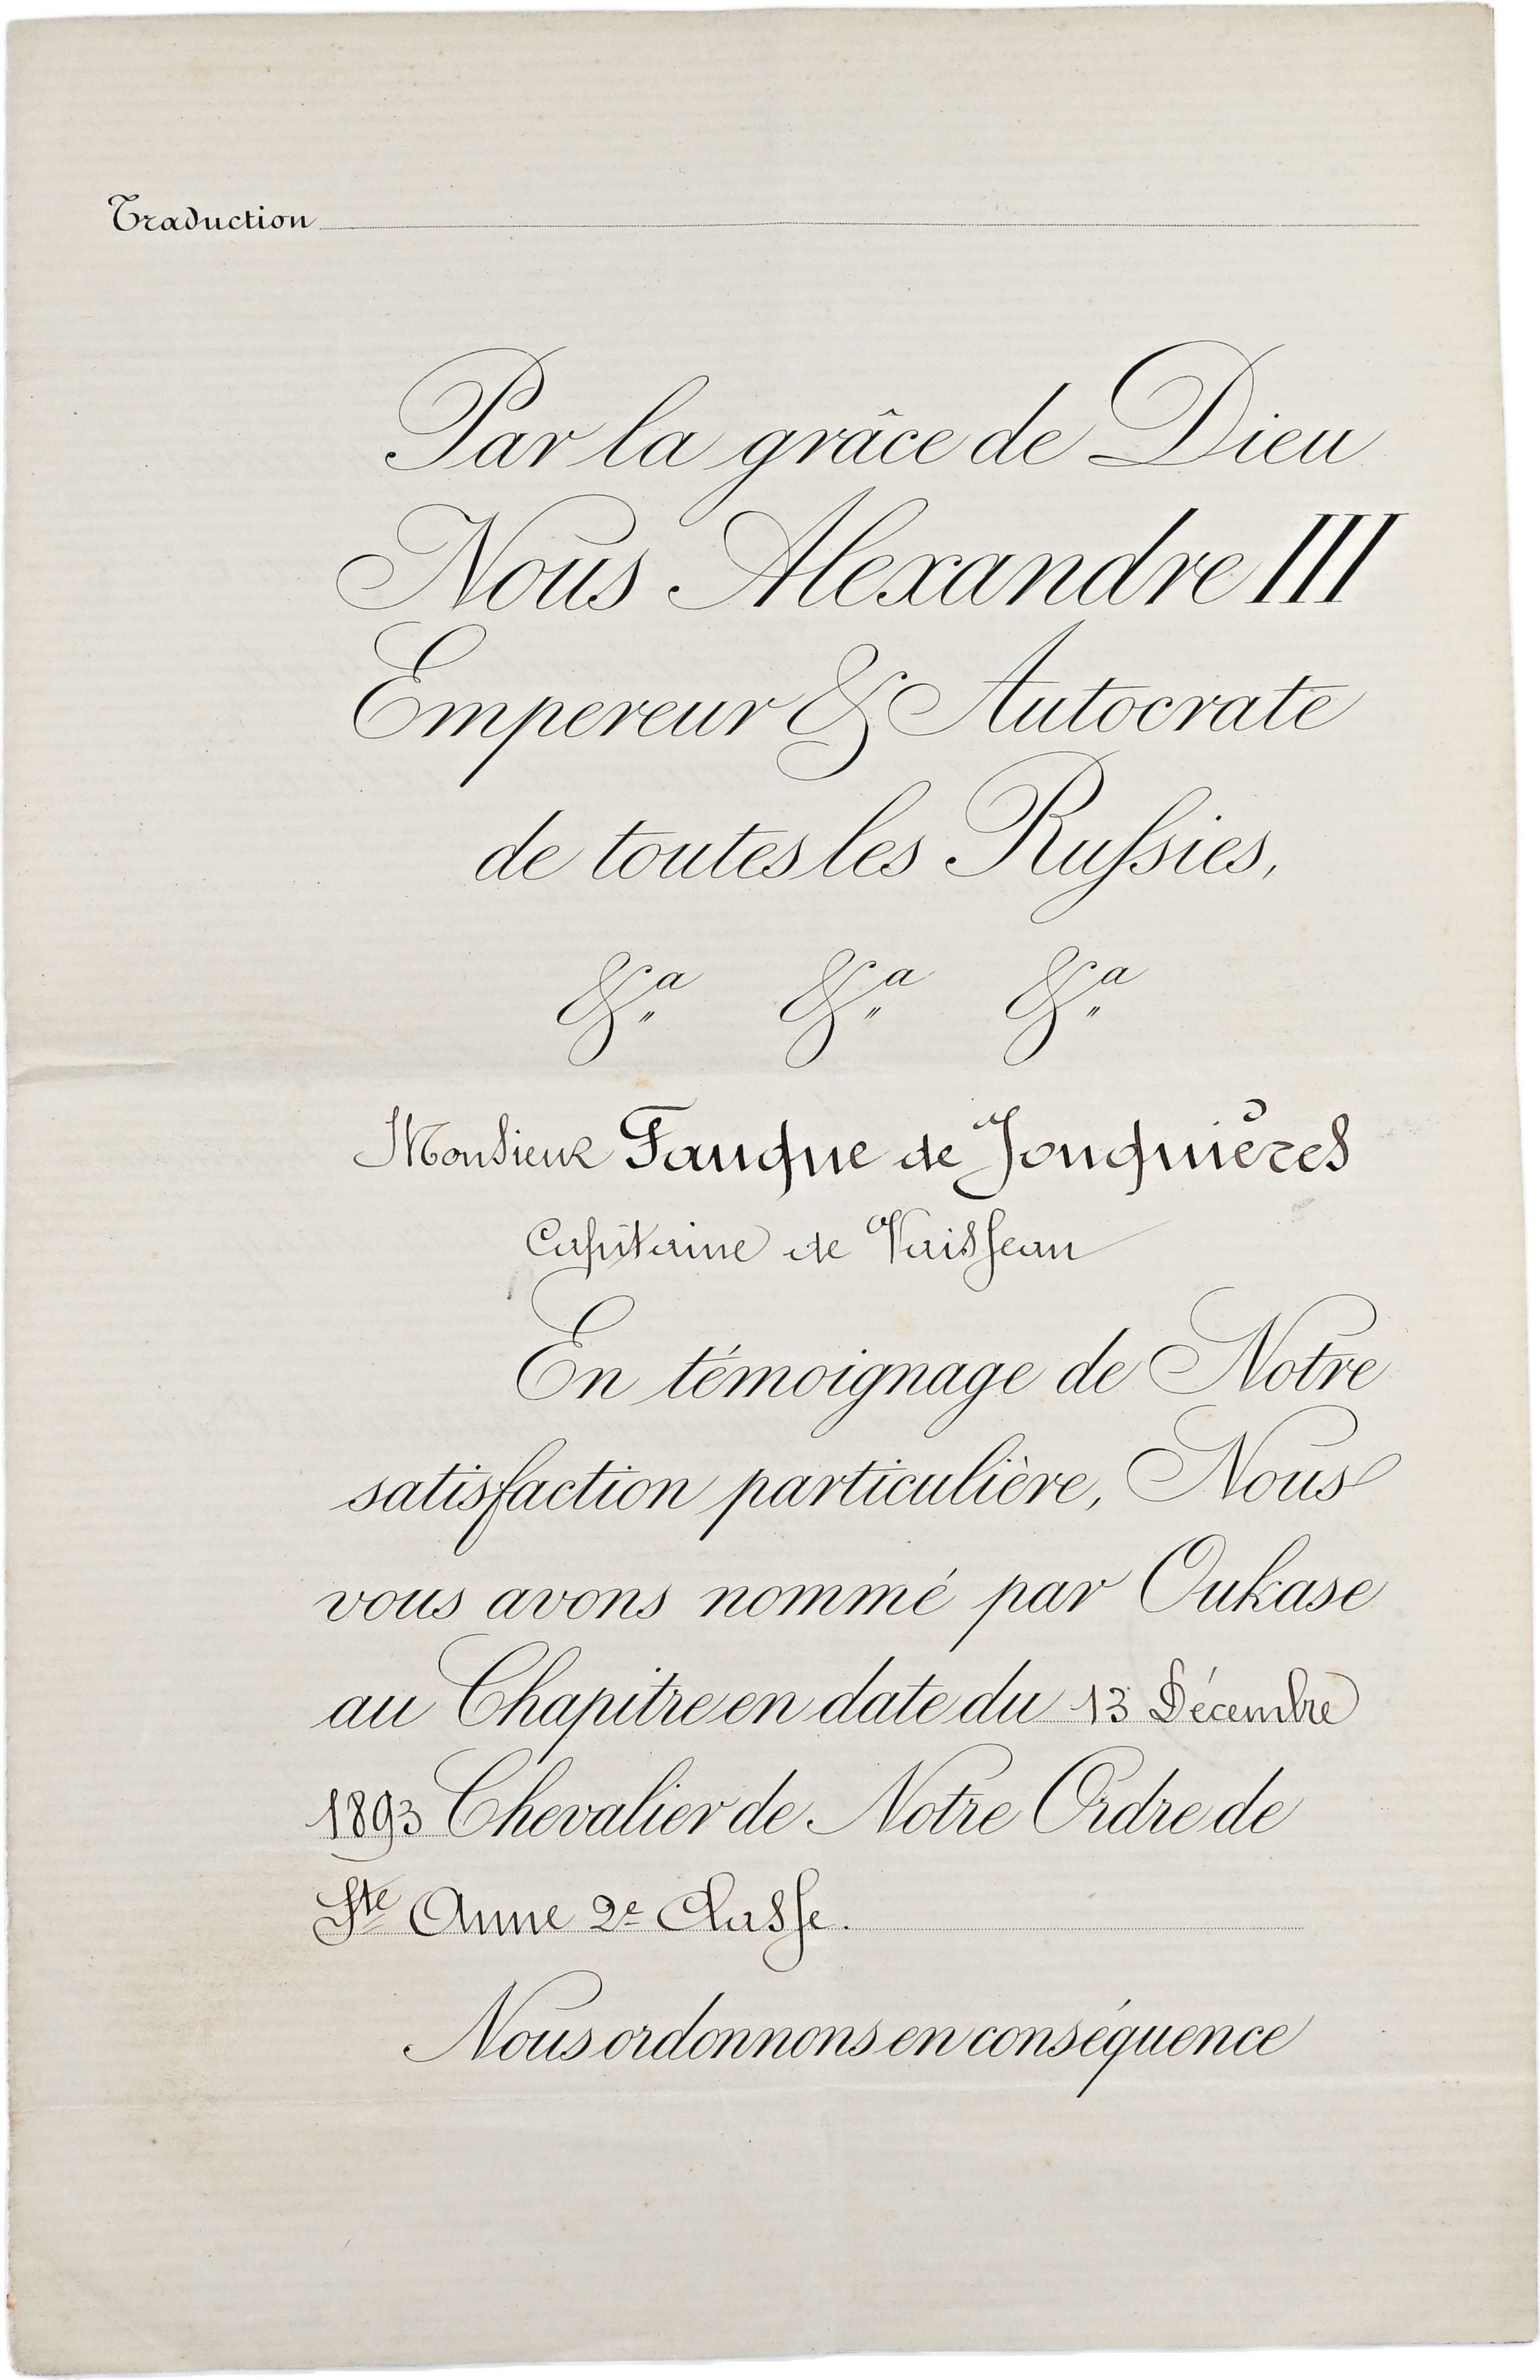 Traduction
Par la grâce de Dieu
Nous Alexandre III
Empereur & Autocrate
de toutes les Russies,
&a &a &a
Monsieur Fauque de Jonquières
Capitaine de Vaisseau
En témoignage de Notre
satisfaction particulière, Nous
vous avons nommé par Oukase
au Chapitre en date du 13 Décembre
1893 Chevalier de Notre Ordre de
Ste Anne 2e Classe.
Nous ordonnons en conséquence